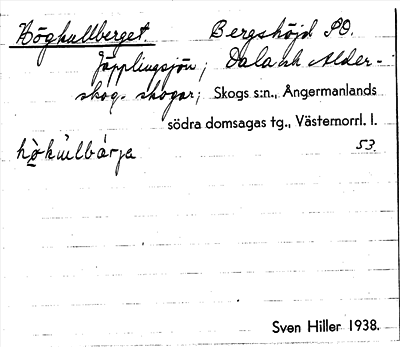 Höghullberget. Bergshöjd PÖ.
Jäpplingsjön; Dala och Alder-
skog. skogar; Skogs s:n., Ångermanlands
södra domsagas tg., Västernorrl. l.
hö̀kúlbárja 53.
Sven Hiller 1938.